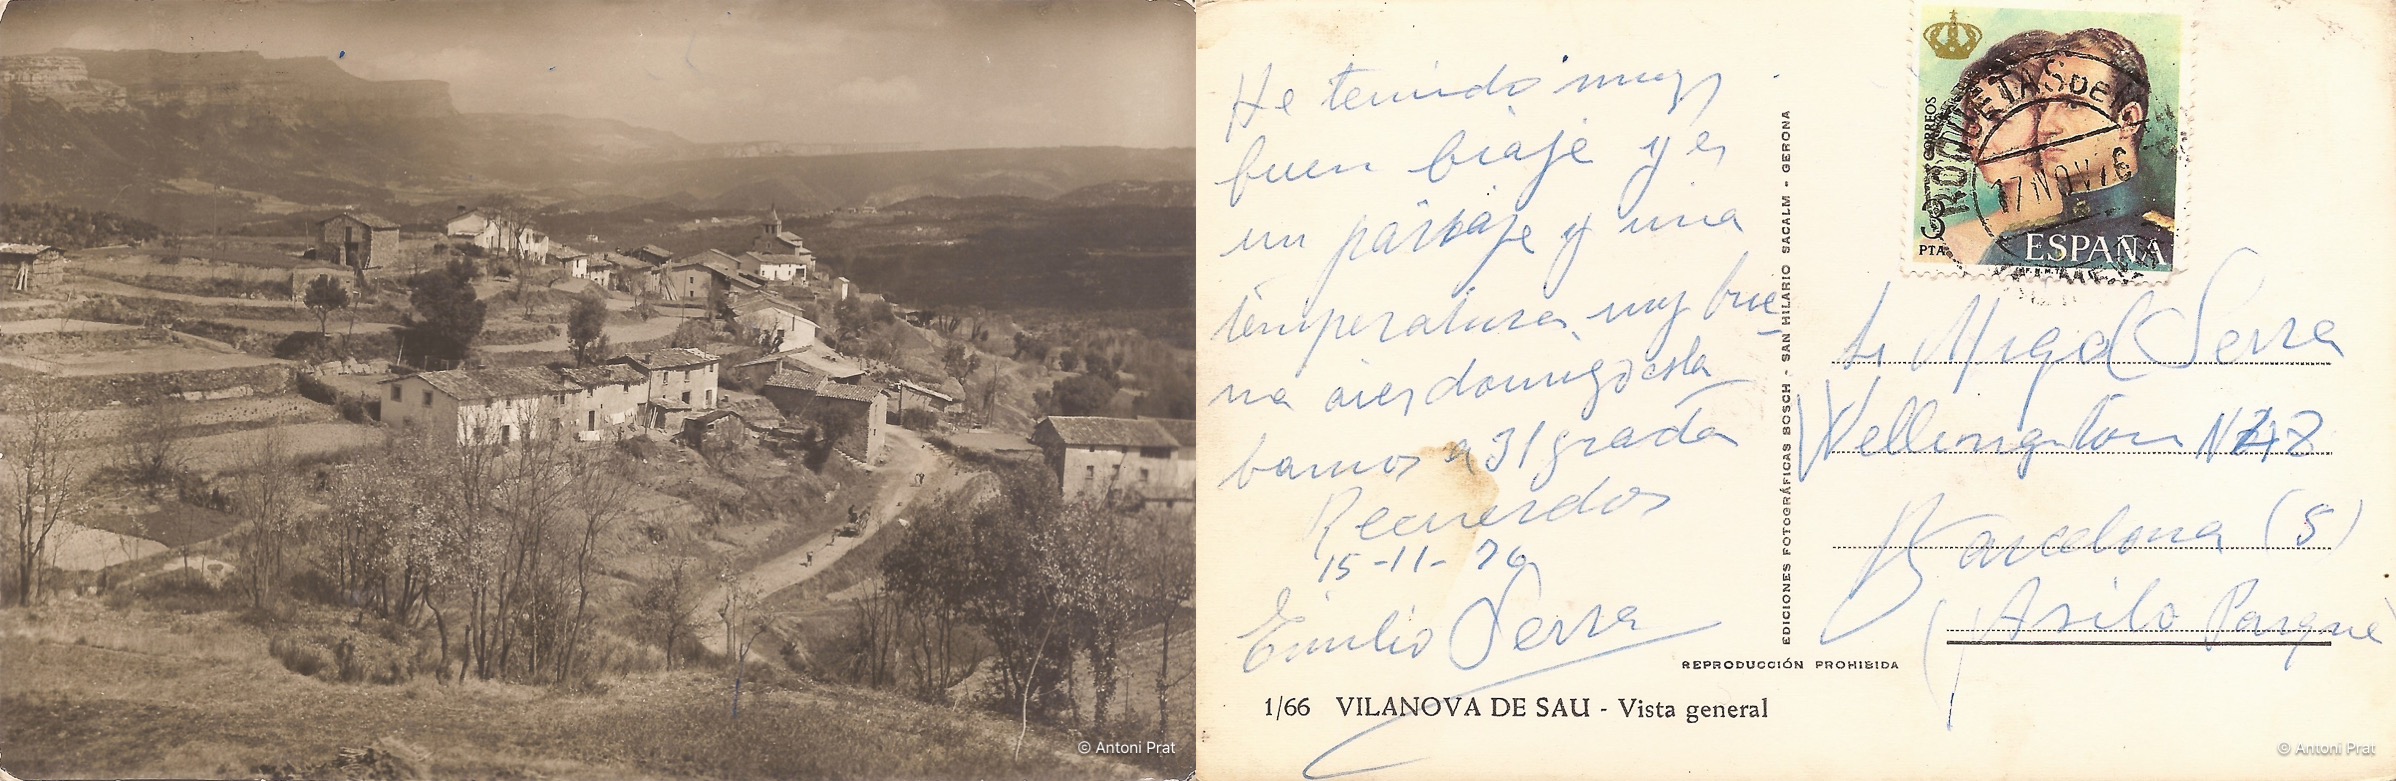 © Antoni Prat
He tenido muy
buen biaje y es
un paisaje y una
temperatura muy bue
na aier domingo esta
bamos a 31 grados
Recuerdos
15-11-76
Emilio Serra
EDICIONES FOTOGRÁFICAS BOSCH - SAN HILARIO SACALM - GERONA
REPRODUCCIÓN PROHIBIDA
1/66 VILANOVA DE SAU - Vista general
CORREOS
3
PTA
ESPAÑA
RODA
17 NOV 76
Sr Migel Serra
Wellington
Barcelona (5)
(Asilo Parque
© Antoni Prat